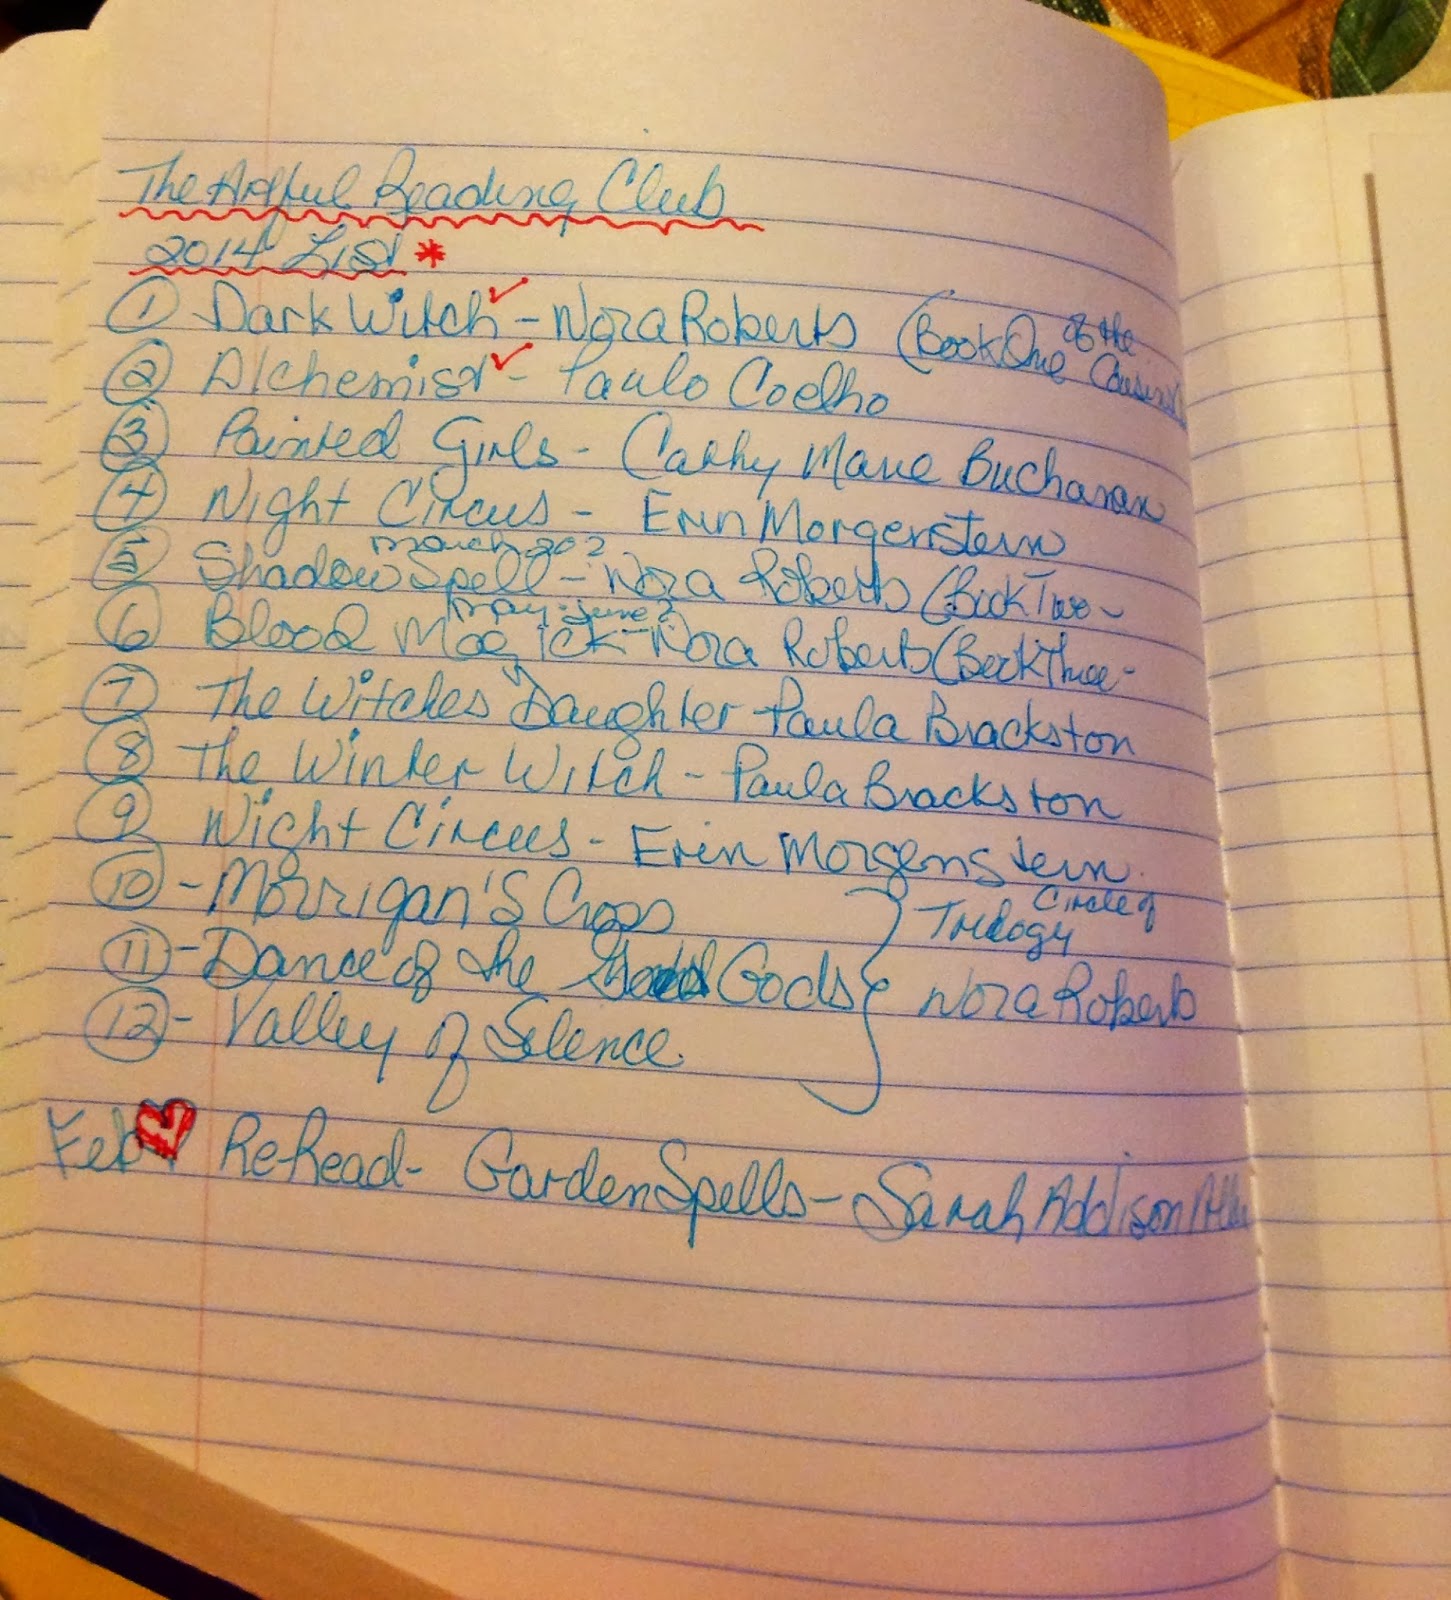 The Artful Reading Club
2014 List *
① Dark Witch ✓ - Nora Roberts (Book One of the Cousins
② Alchemist ✓ - Paulo Coelho
③ Painted Girls - Cathy Marie Buchanan
④ Night Circus - Erin Morgenstern
March
⑤ Shadow Spell - Nora Roberts (Book Two -
May-June?
⑥ Blood Magick - Nora Roberts (Book Three -
⑦ The Witches Daughter - Paula Brackston
⑧ The Winter Witch - Paula Brackston
⑨ Night Circus - Erin Morgenstern
⑩ - Morrigan's Cross
Circle of
Trilogy
⑪ - Dance of the Gods
Nora Roberts
⑫ - Valley of Silence
Feb ReRead - Garden Spells - Sarah Addison Allen